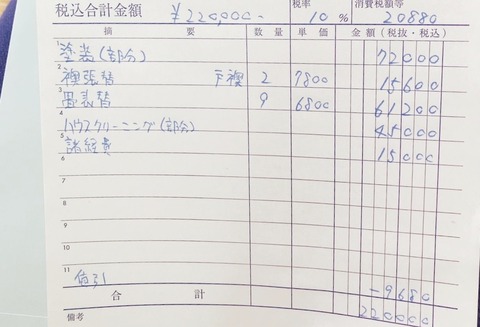 税込合計金額 ¥220,000- 税率 10% 消費税額等 20880
摘要 数量 単価 金額(税抜・税込)
1 塗装(部分) 72000
2 襖張替 戸襖 2 7800 15600
3 畳表替 9 6800 61200
4 ハウスクリーニング(部分) 45000
5 諸経費 15000
6
7
8
9
10
11
値引 -9680
合計 220000
備考